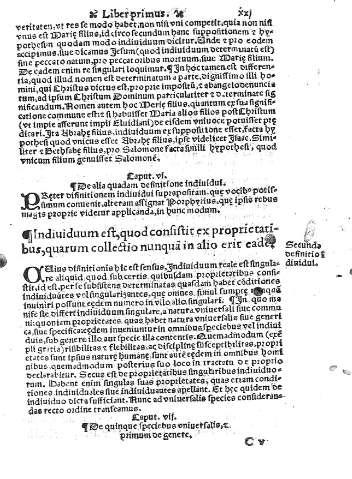 Liber primus. xxj
veritaten, vt res se modo habet, non nisi vni competit, quia non nisi
vnus est Marie filius, id circo secundum hanc suppositionen z hy
pothesin quodam modo indiuiduum dicitur. Unde z pro eodem
accipimus, siue dicamus Jesum (quod indiuiduum determinatũ est)
siue peccatore natum, pro peccatoribus mortuum, siue Marie filium.
De eadem enim re singulari loquimur. ¶ In hoc tamen est differen
tia, quod illud nomen est determinatum a parte, dignissimo illi homi
ni, qui Christus dictus est, pro prie impositũ, z angelo denuncia
tum, ad ipsum Christum Dominum particulariter z determinate sig
nificandum. Nomen autem hoc Marie filius, quantum ex sua signifi
catione commune est: z si habuisset Maria alios filios post Christum
(vt impie asserunt impij Eluidiani) de eisdem vniuoce potuisset pre
dicari. Ita Abrahe filius, indiuiduum ex suppositione esset, facta hy
pothesi quod vnicus esset Abrahe filius, ipse videlicet Isaac. Simi
liter z Bethsabe filius, pro Salomone facta simili hypothesi, quod
vnicum filium genuisset Salomonẽ.
Caput. vj.
¶ De alia quadam definitione indiuidui.
PReter definitionem indiuidui suprapositam, que vocibus potis-
simum conuenit, alteram assignat Porphyrius, que ipsis rebus
magis proprie videtur applicanda, in hunc modum.
¶ Indiuiduum est, quod consistit ex proprietati-
bus, quarum collectio nunquã in alio erit eadẽ
Secunda
definitio
diuidui.
definitionis hic est sensus. Indiuiduum reale est singula-
re aliquid, quod sub certis, quibusdam proprietatibus consi-
stit, id est, per se subsistens determinatas quasdam habet cõditiones
indiuiduantes vel singularizantes, que omnes, simul sumpte
eedem numero in vllo alio singulari. ¶ In quo ma
nifeste differt indiuiduum singulare, a natura vniuersali siue commu
ni: quoniam proprietates, quas habet natura vniuersalis siue generi
ca, siue specifica eedem inueniuntur in omnibus speciebus vel indiui
duis, sub genere illo aut specie illa contentis. Quemadmodum
pli gratia) risibilitas z flebilitas, ac discipline susceptibilitas, propri
etates sunt ipsius nature humane, sunt autem eedem in omnibus homi
nibus, quemadmodum posterius suo loco in tractatu de proprio
declarabitur. Secus est de proprietatibus singularibus indiuiduo
rum. Habent enim singulas suas proprietates, quas etiam condi-
tiones indiuiduales siue indiuiduantes apellant. Et hec quidem de
indiuiduo dicta sufficiant. Nunc ad vniuersalis species consideran-
das recto ordine transeamus.
Caput. vij.
¶ De quinque speciebus vniuersalis, z
primum de genere.
C v